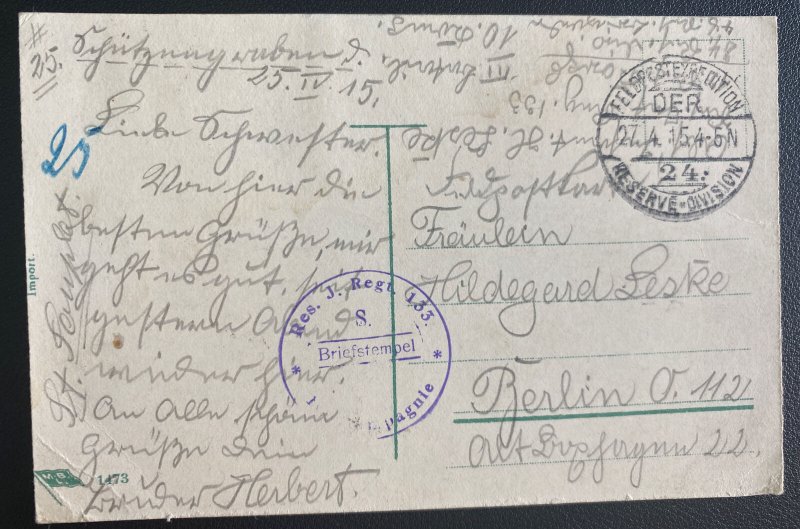 # 25.
Schützengraben d.
25. IV. 15.
25
Liebe Schwester.
Von hier die
besten Grüße, mir
geht es gut, seit
gestern Abend
wieder hier.
An Alle schöne
Grüße Dein
Bruder Herbert.
Import.
1473
Res. J. Regt 133.
S.
Briefstempel
FELDPOSTEXPEDITION
DER
27.4.15.4-5N
24.
RESERVE-DIVISION
H. Leske
133
III
10.
Feldpostkarte
Fräulein
Hildegard Leske
Berlin O. 112
Alt Boxhagen 22.